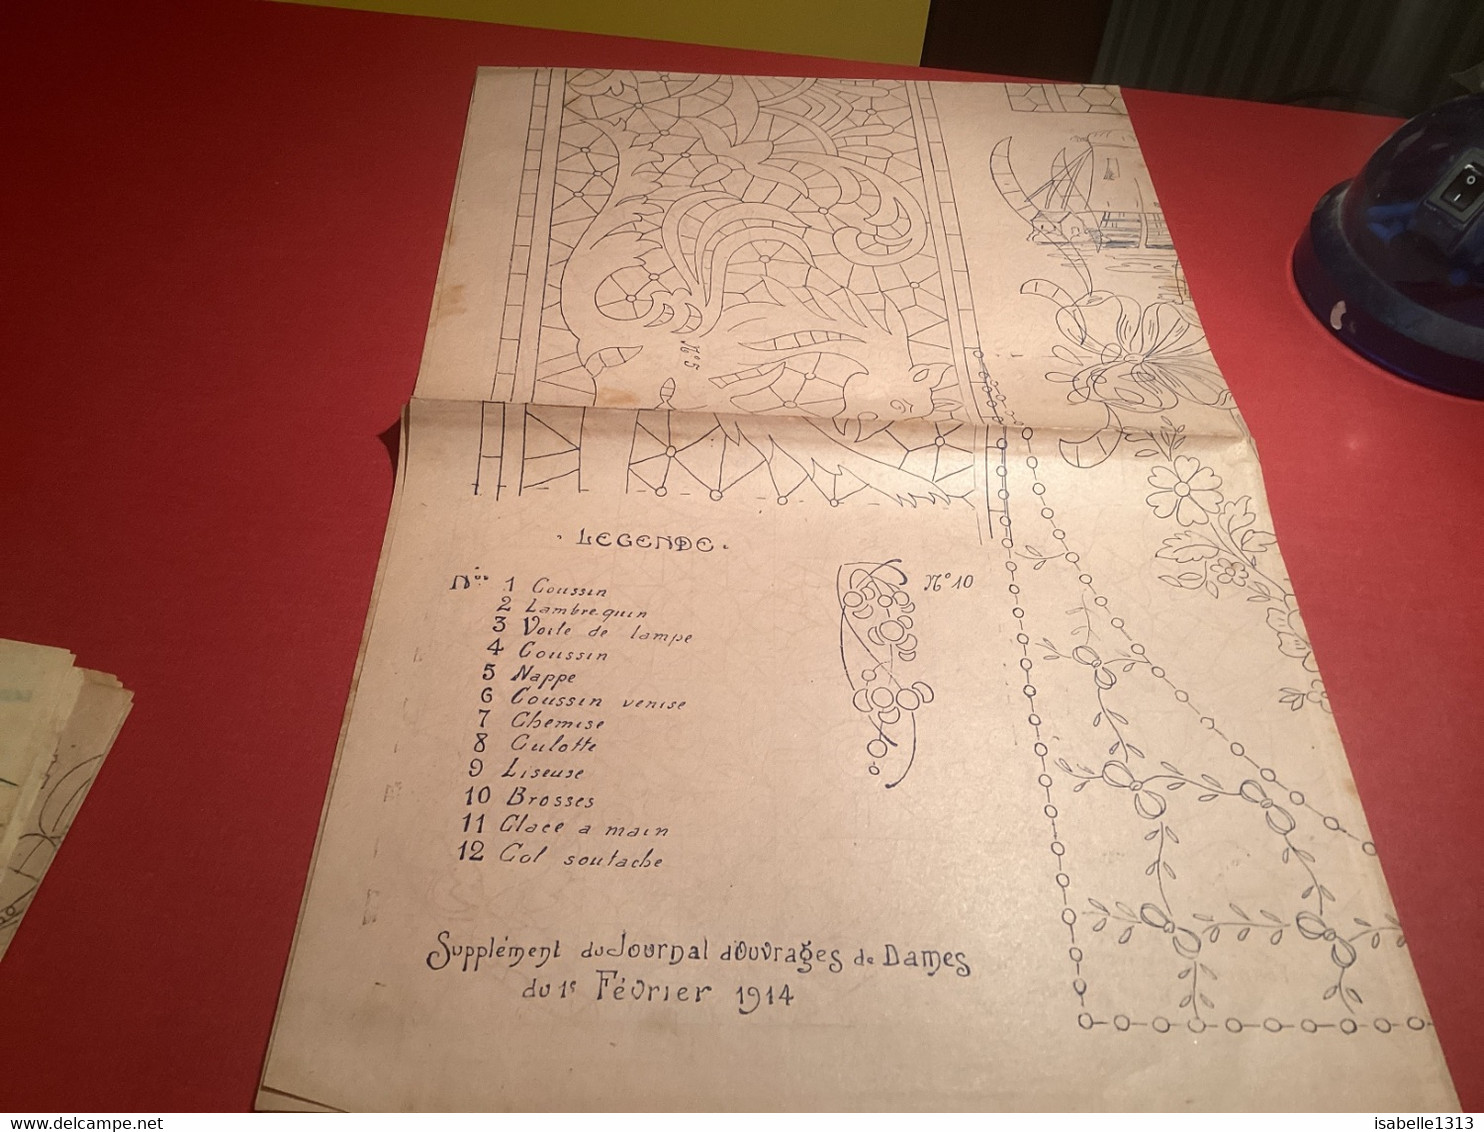 N° 5
· LEGENDE ·
Nos 1 Coussin
2 Lambrequin
3 Voile de lampe
4 Coussin
5 Nappe
6 Coussin venise
7 Chemise
8 Culotte
9 Liseuse
10 Brosses
11 Glace a main
12 Col soutache
N° 10
Supplément du Journal d'Ouvrages de Dames
du 1e Février 1914
delcampe.net
isabelle1313